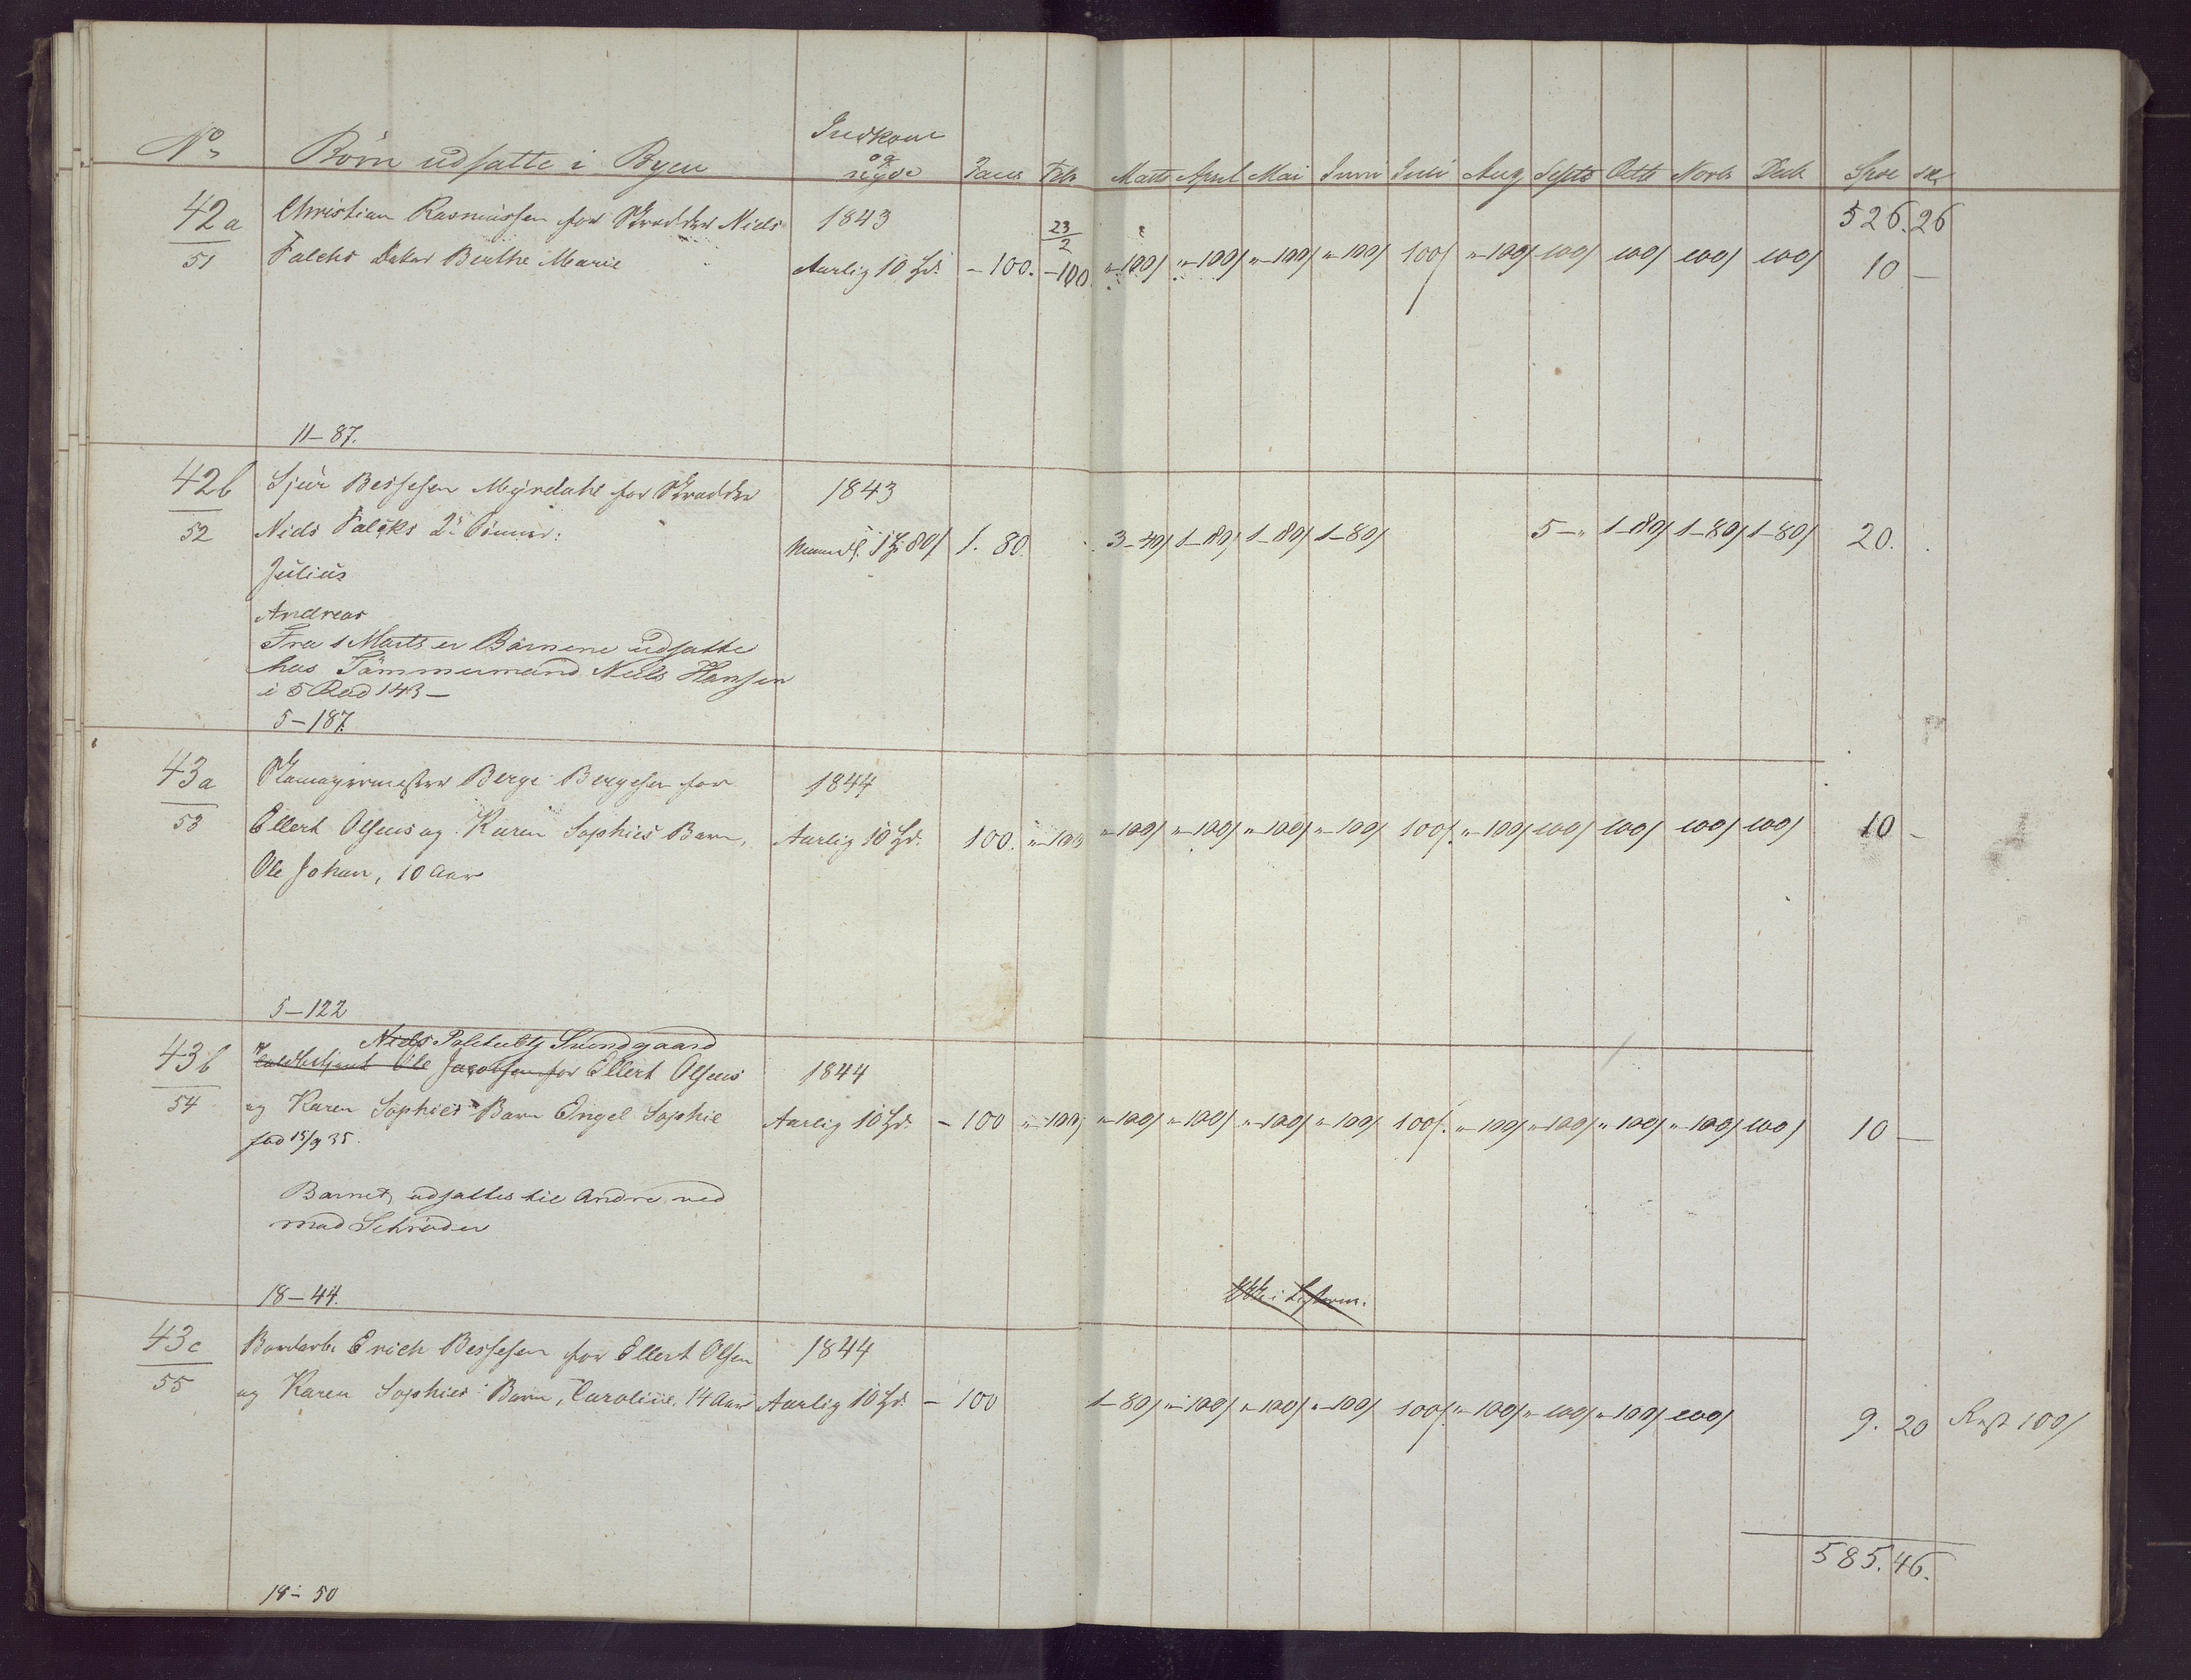 No Børn udsatte i Byen Indkom og nyde Janr Febr Marts April Mai Juni Juli Aug Septb Octb Novb Decb Spd sk
526. 26
42a Christian Rasmussen for Skrædder Niels 1843 23/2
51 Falchs Datter Berthe Marie Aarlig 10 Spd. - 100. - 100 "-100/ "-100/ "-100/ "-100/ 100/ "-100/ 100/ 100/ 100/ 100/ 10 -
11-87.
42b Sjur Bessesen Myrdahl for Skrædder 1843
52 Niels Falcks 2de Sønner: Maanedl. 1 80/ 1. 80. 3-40/ 1-80/ 1-80/ 1-80/ 5-" 1-80/ 1-80/ 1-80/ 20.
Julius
Andreas
Fra 1 Marts er Börnene udsatte
hos Tömmermand Niels Hansen
i 5 Rod 143-
5-187.
43a Berge Bergesen for 1844
53 Ellert Olsens og Karen Sophies Barn, Aarlig 10 Spd. 100. "-100 "-100/ "-100/ "-100/ "-100/ 100/. "-100/ 100/ 100/ 100/ 100/ 10 -
Ole Johan, 10 Aar
5-122
Niels Sundgaard
43b Ole Jacobsen for Ellert Olsens 1844
54 og Karen Sophies Barn Engel Sophie Aarlig 10 Spd. - 100 "-100/ "-100/ "-100/ "-100/ "-100/ 100/. "-100/ "-100/ "-100/ "-100/ 100/ 10 -
fød 15/9 35.
Barnet udsattes til Andre ved
Mad Schrøder
18-44.
Ikke i Listerne.
43c Erich Bessesen for Ellert Olsen 1844
55 og Karen Sophies Barn, Caroline, 14 Aar Aarlig 10 Spd. - 100 1-80/ "-100/ "-100/ "-100/ 100/. "-100/ "-100/ "-100/ 100/ 9. 20 Rest 100/
585. 46.
18-50